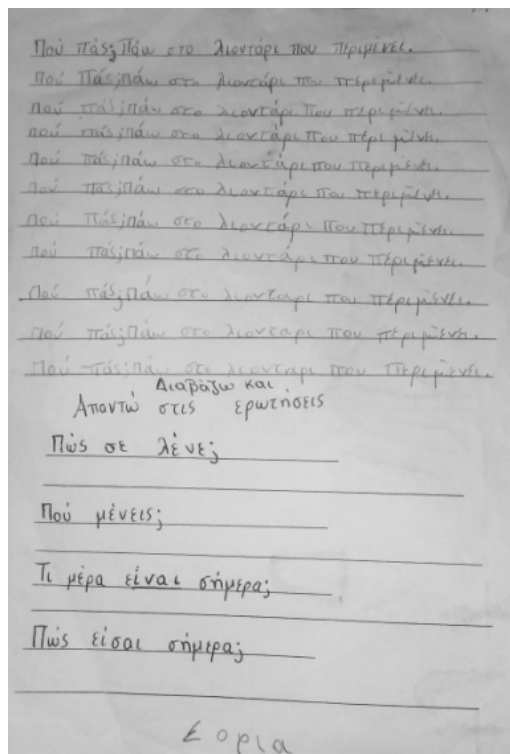 Πού πάς; Πάω στο λιοντάρι που περιμένει.
Πού Πάς; πάω στο λιοντάρι που περιμένει.
πού πάς; πάω στο λιοντάρι που περιμένει.
πού πάς; πάω στο λιοντάρι που περιμένει.
Πού πάς; πάω στο λιοντάρι που περιμένει.
Πού πάς; πάω στο λιοντάρι που περιμένει.
Πού πάς; πάω στο λιοντάρι που περιμένει.
Πού πάς; πάω στο λιοντάρι που περιμένει.
Πού πάς; Πάω στο λιονταρι που περιμένει.
Πού πάς; Πάω στο λιονταρι που περιμένει.
Πού πάς; πάω στο λιονταρι που περιμένει.
Διαβάζω και
Απαντώ στις ερωτήσεις
Πώς σε λένε;
Πού μένεις;
Τι μέρα είναι σήμερα;
Πώς είσαι σήμερα;